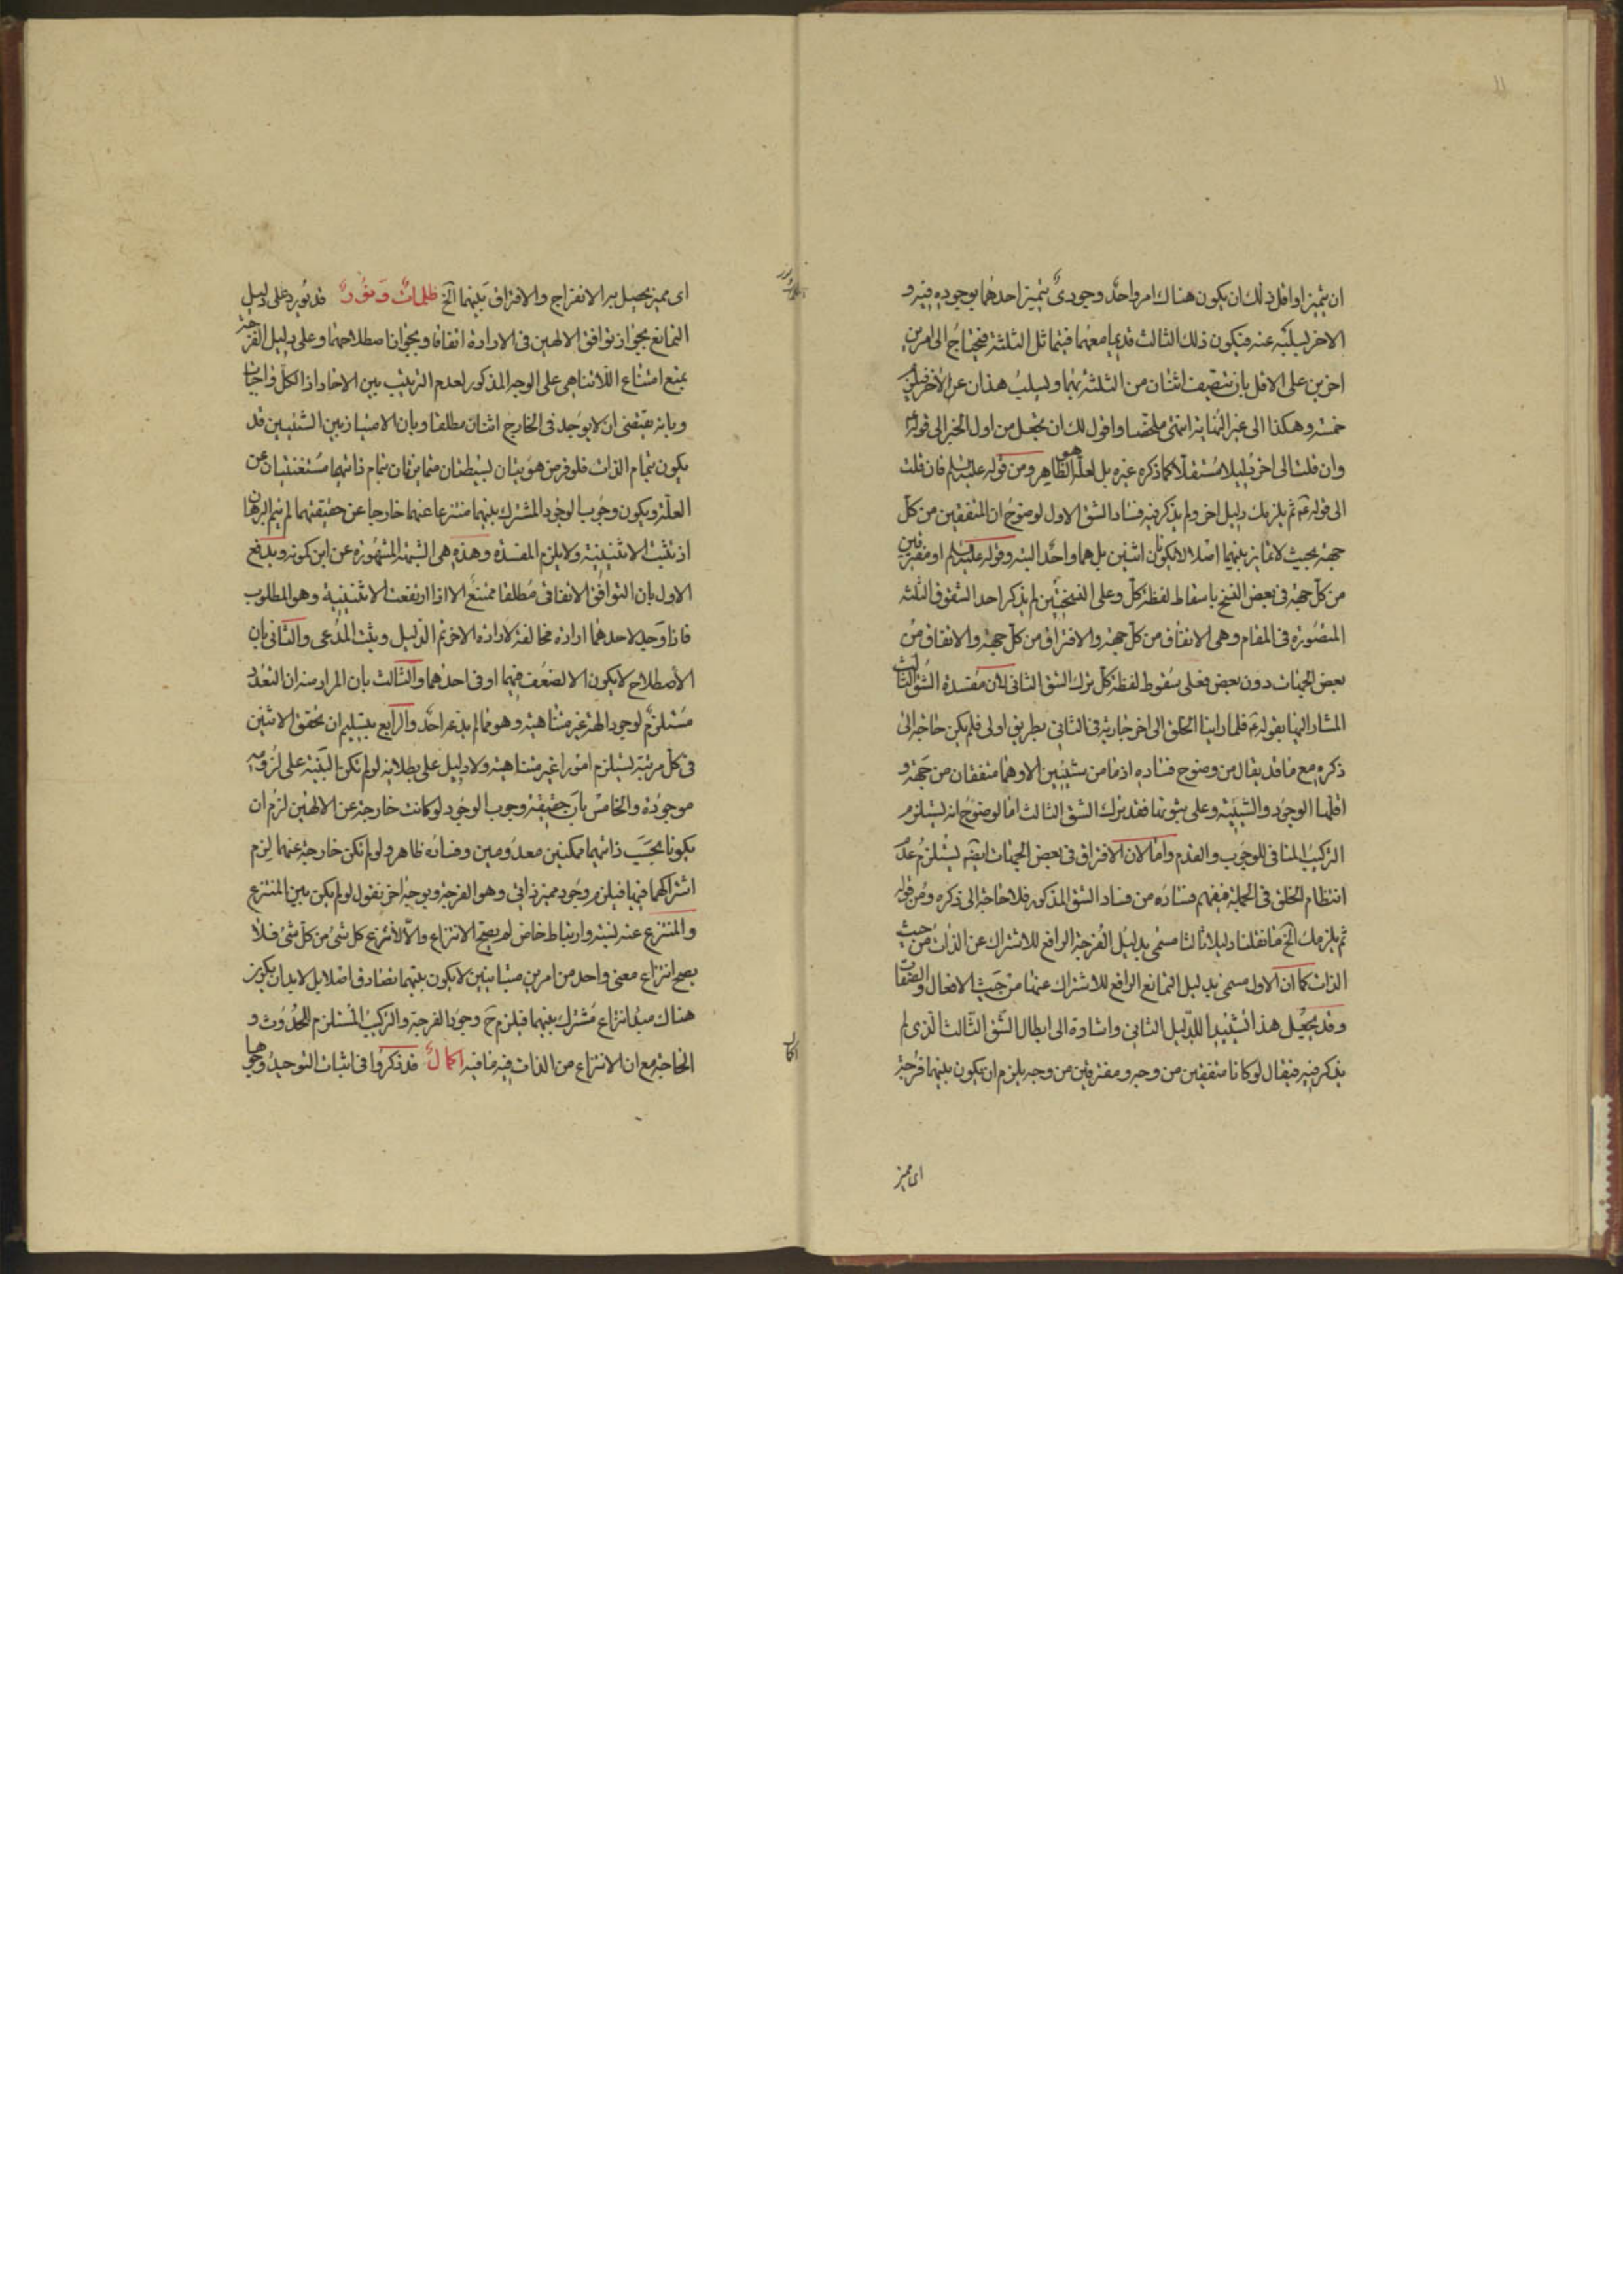 ان يتميز او اقل ذلك ان يكون هناك امر واحد وجودي يتميز احدهما بوجوده فيه و
الاخر بسلبه عنه فيكون ذلك الثالث قديما معهما فيتماثل الثلثة فيحتاج الى امرين
اخرين على الاقل بان يتصف اثنان من الثلثة بهما ويسلب هذان عن الاخر فيلزم
خمسة وهكذا الى غير النهاية انتهى ملخصا واقول لك ان تجعل من اول الخبر الى قوله
وان قلت الى اخر دليلا مستقلا كما ذكره غيره بل لعله هو الظاهر ومن قوله عليه السلم فان قلت
الى قوله ع ثم يلزمك دليل اخر ولم يذكر فيه فساد الشق الاول لوضوح ان المتفقين من كل
جهة بحيث لا تمايز بينهما اصلا لا يكونان اثنين بل هما واحد البتة وقوله عليه السلم او مفترقين
من كل جهة في بعض النسخ باسقاط لفظة كل وعلى النسختين لم يذكر احد الشقوق الثلثة
المتصورة في المقام وهي الاتفاق من كل جهة والافتراق من كل جهة والاتفاق من
بعض الجهات دون بعض فعلى سقوط لفظة كل ترك الشق الثاني لان مفسدة الشق الثالث
المشار اليها بقوله ع فلما راينا الخلق الى اخر جارية في الثاني بطريق اولى فلم يكن حاجة الى
ذكره مع ما قد يقال من وضوح فساده اذ ما من شيئين الا وهما متفقان من جهة و
اقلها الوجود والشيئية وعلى ثبوتها فقد ترك الشق الثالث اما لوضوح انه يستلزم
التركيب المنافي للوجوب والقدم واما لان الافتراق في بعض الجهات ايضا يستلزم عدم
انتظام الخلق في الجملة فيفهم فساده من فساد الشق المذكور فلا حاجة الى ذكره ومن قوله
ثم يلزمك الخ ما نقلنا دليلا ثالثا مسمى بدليل الفرجة الرافع للاشتراك عن الذات من حيث
الذات كما ان الاول مسمى بدليل التمانع الرافع للاشتراك عنها من حيث الافعال والصفات
وقد يجعل هذا تشييدا للدليل الثاني واشارة الى ابطال الشق الثالث الذي لم
يذكر فيه فيقال لو كانا متفقين من وجه ومفترقين من وجه يلزم ان يكون بينهما فرجة
اى مميز
اى مميز يحصل به الانفراج والافتراق بينهما الخ ظلمات ونور قد نورد على دليل
التمانع بجواز توافق الالهين في الارادة اتفاقا وبجواز اصطلاحهما وعلى دليل الفرجة
بمنع امتناع اللاتناهي على الوجه المذكور لعدم الترتيب بين الاحاد اذ الكل واجبات
وبانه يقتضى ان لا يوجد في الخارج اثنان مطلقا وبان الامتياز بين الشيئين قد
يكون بتمام الذات فلو فرض هويتان بسيطتان متمايزتان بتمام ذاتهما مستغنيتان عن
العلة ويكون وجوب الوجود المشترك بينهما منتزعا عنهما خارجا عن حقيقتهما لم يتم البرهان
اذ تثبت الاثنينية ولا يلزم المفسدة وهذه هي الشبهة المشهورة عن ابن كمونه ويدفع
الاول بان التوافق الاتفاقي مطلقا ممتنع الا اذا ارتفعت الاثنينية وهو المطلوب
فاذا وجد لاحدهما ارادة مخالفة لارادة الاخر تم الدليل ويثبت المدعى والثاني بان
الاصطلاح لا يكون الا لضعف فيهما او في احدهما والثالث بان المراد منه ان التعدد
مستلزم لوجود الهة غير متناهية وهو مما لم يدعه احد والرابع بتسليم ان تحقق الاثنين
في كل مرتبة يستلزم امورا غير متناهية ولا دليل على بطلانه لو لم تكن البينة على لزومه
موجودة والخامس بان حقيقة وجوب الوجود لو كانت خارجة عن الالهين لزم ان
يكونا بحسب ذاتهما ممكنين معدومين وفساده ظاهر ولو لم تكن خارجة عنهما لزم
اشتراكهما فيها فيلزم وجود مميز ذاتي وهو الفرجة وبوجه اخر نقول لو لم يكن بين المنتزع
والمنتزع عنه نسبة وارتباط خاص لم يصح الانتزاع والا لانتزع كل شئ من كل شئ فلا
يصح انتزاع معنى واحد من امرين متباينين لا يكون بينهما تصادق اصلا بل لا بد ان يكون
هناك مبدا انتزاع مشترك بينهما فيلزم ح وجود الفرجة والتركيب المستلزم للحدوث و
الحاجة مع ان الانتزاع من الذات فيه ما فيه اكمال قد ذكروا في اثبات التوحيد وجوها